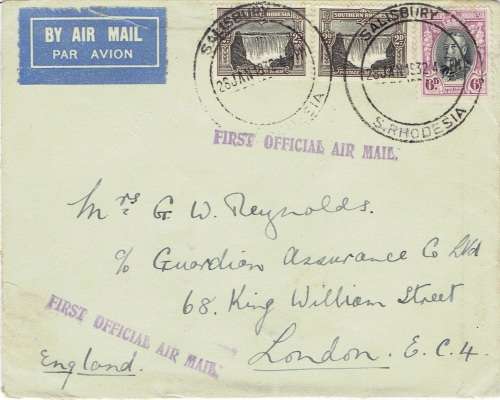 BY AIR MAIL
PAR AVION
SALISBURY
26 JAN
SOUTHERN RHODESIA
SALISBURY
26 JAN 1932
S. RHODESIA
6D
FIRST OFFICIAL AIR MAIL.
Mrs G. W. Reynolds.
c/o Guardian Assurance Co Ltd
68. King William Street
London. E.C.4.
England.
FIRST OFFICIAL AIR MAIL.